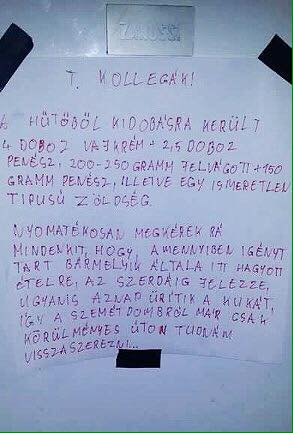 ZANUSSI
T. KOLLEGÁK!
A HŰTŐBŐL KIDOBÁSRA KERÜLT
4 DOBOZ VAJKRÉM + 2,5 DOBOZ
PENÉSZ, 200-250 GRAMM FELVÁGOTT + 150
GRAMM PENÉSZ, ILLETVE EGY ISMERETLEN
TÍPUSÚ ZÖLDSÉG.
NYOMATÉKOSAN MEGKÉREK RÁ
MINDENKIT, HOGY, AMENNYIBEN IGÉNYT
TART BÁRMELYIK ÁLTALA ITT HAGYOTT
ÉTELRE, AZ SZERDÁIG JELEZZE,
UGYANIS AZNAP ÜRÍTIK A KUKÁT,
ÍGY A SZEMÉTDOMBRÓL MÁR CSAK
KÖRÜLMÉNYES ÚTON TUDNÁM
VISSZASZEREZNI...